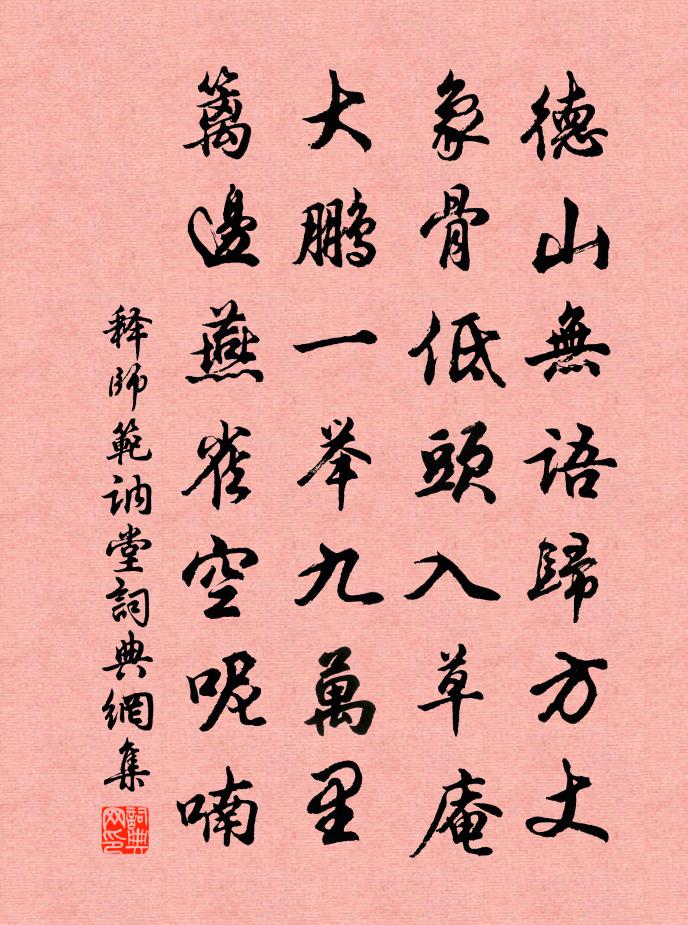 德山無語歸方丈
象骨低頭入草庵
大鵬一举九萬里
籬邊燕雀空呢喃
释師範訥堂詞典網集
詞典网印